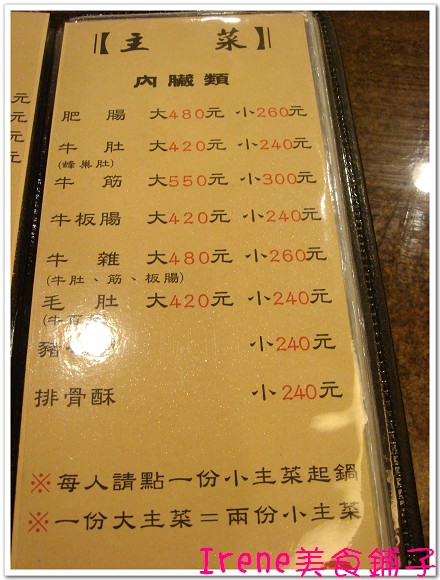 【主 菜】
內臟類
肥腸 大480元 小260元
牛肚 大420元 小240元
(蜂巢肚)
牛筋 大550元 小300元
牛板腸 大420元 小240元
牛雜 大480元 小260元
(牛肚、筋、板腸)
毛肚 大420元 小240元
(牛百
豬 小240元
排骨酥 小240元
※每人請點一份小主菜起鍋
※一份大主菜=兩份小主菜
元
元
元
元
Irene美食鋪子